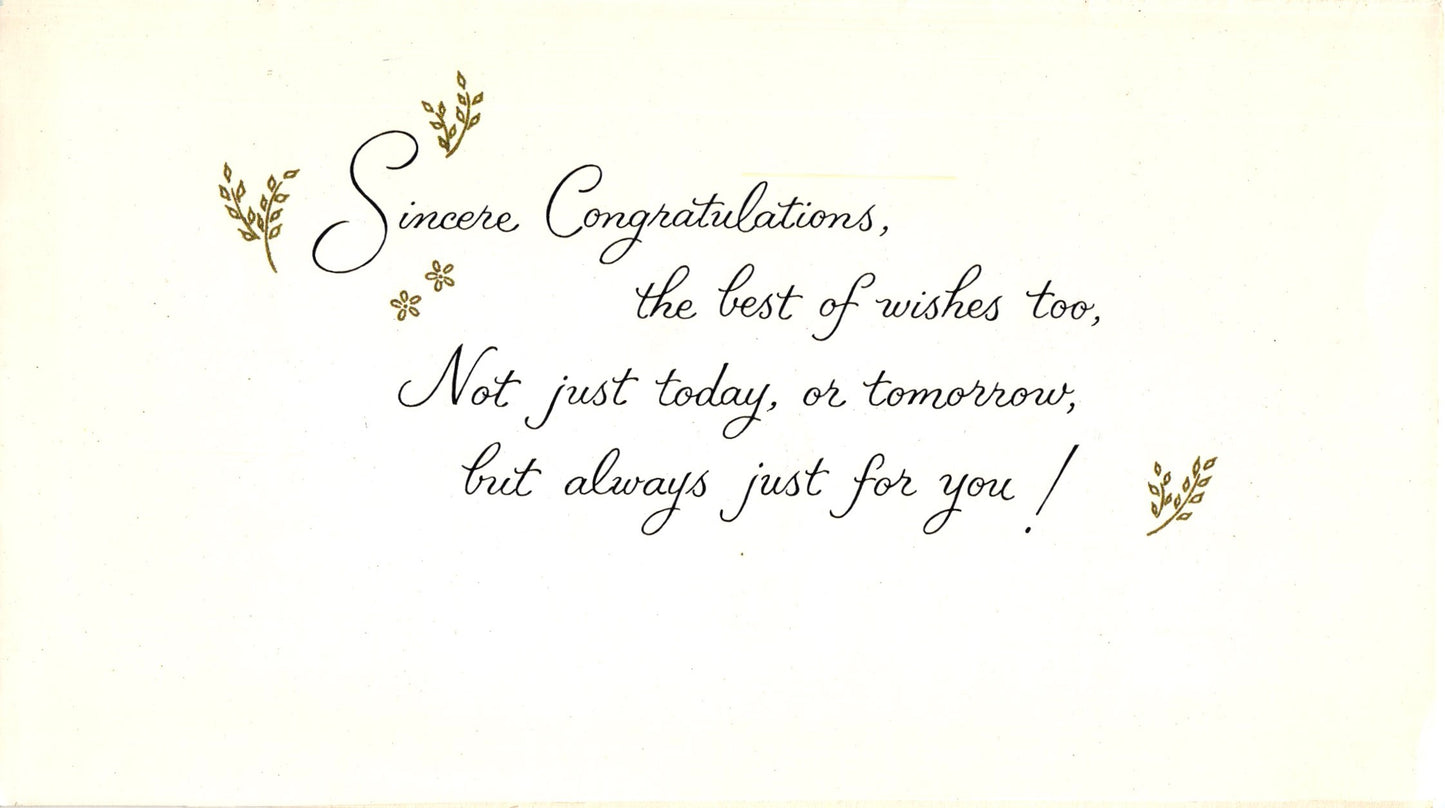 Sincere Congratulations,
the best of wishes too,
Not just today, or tomorrow,
but always just for you!